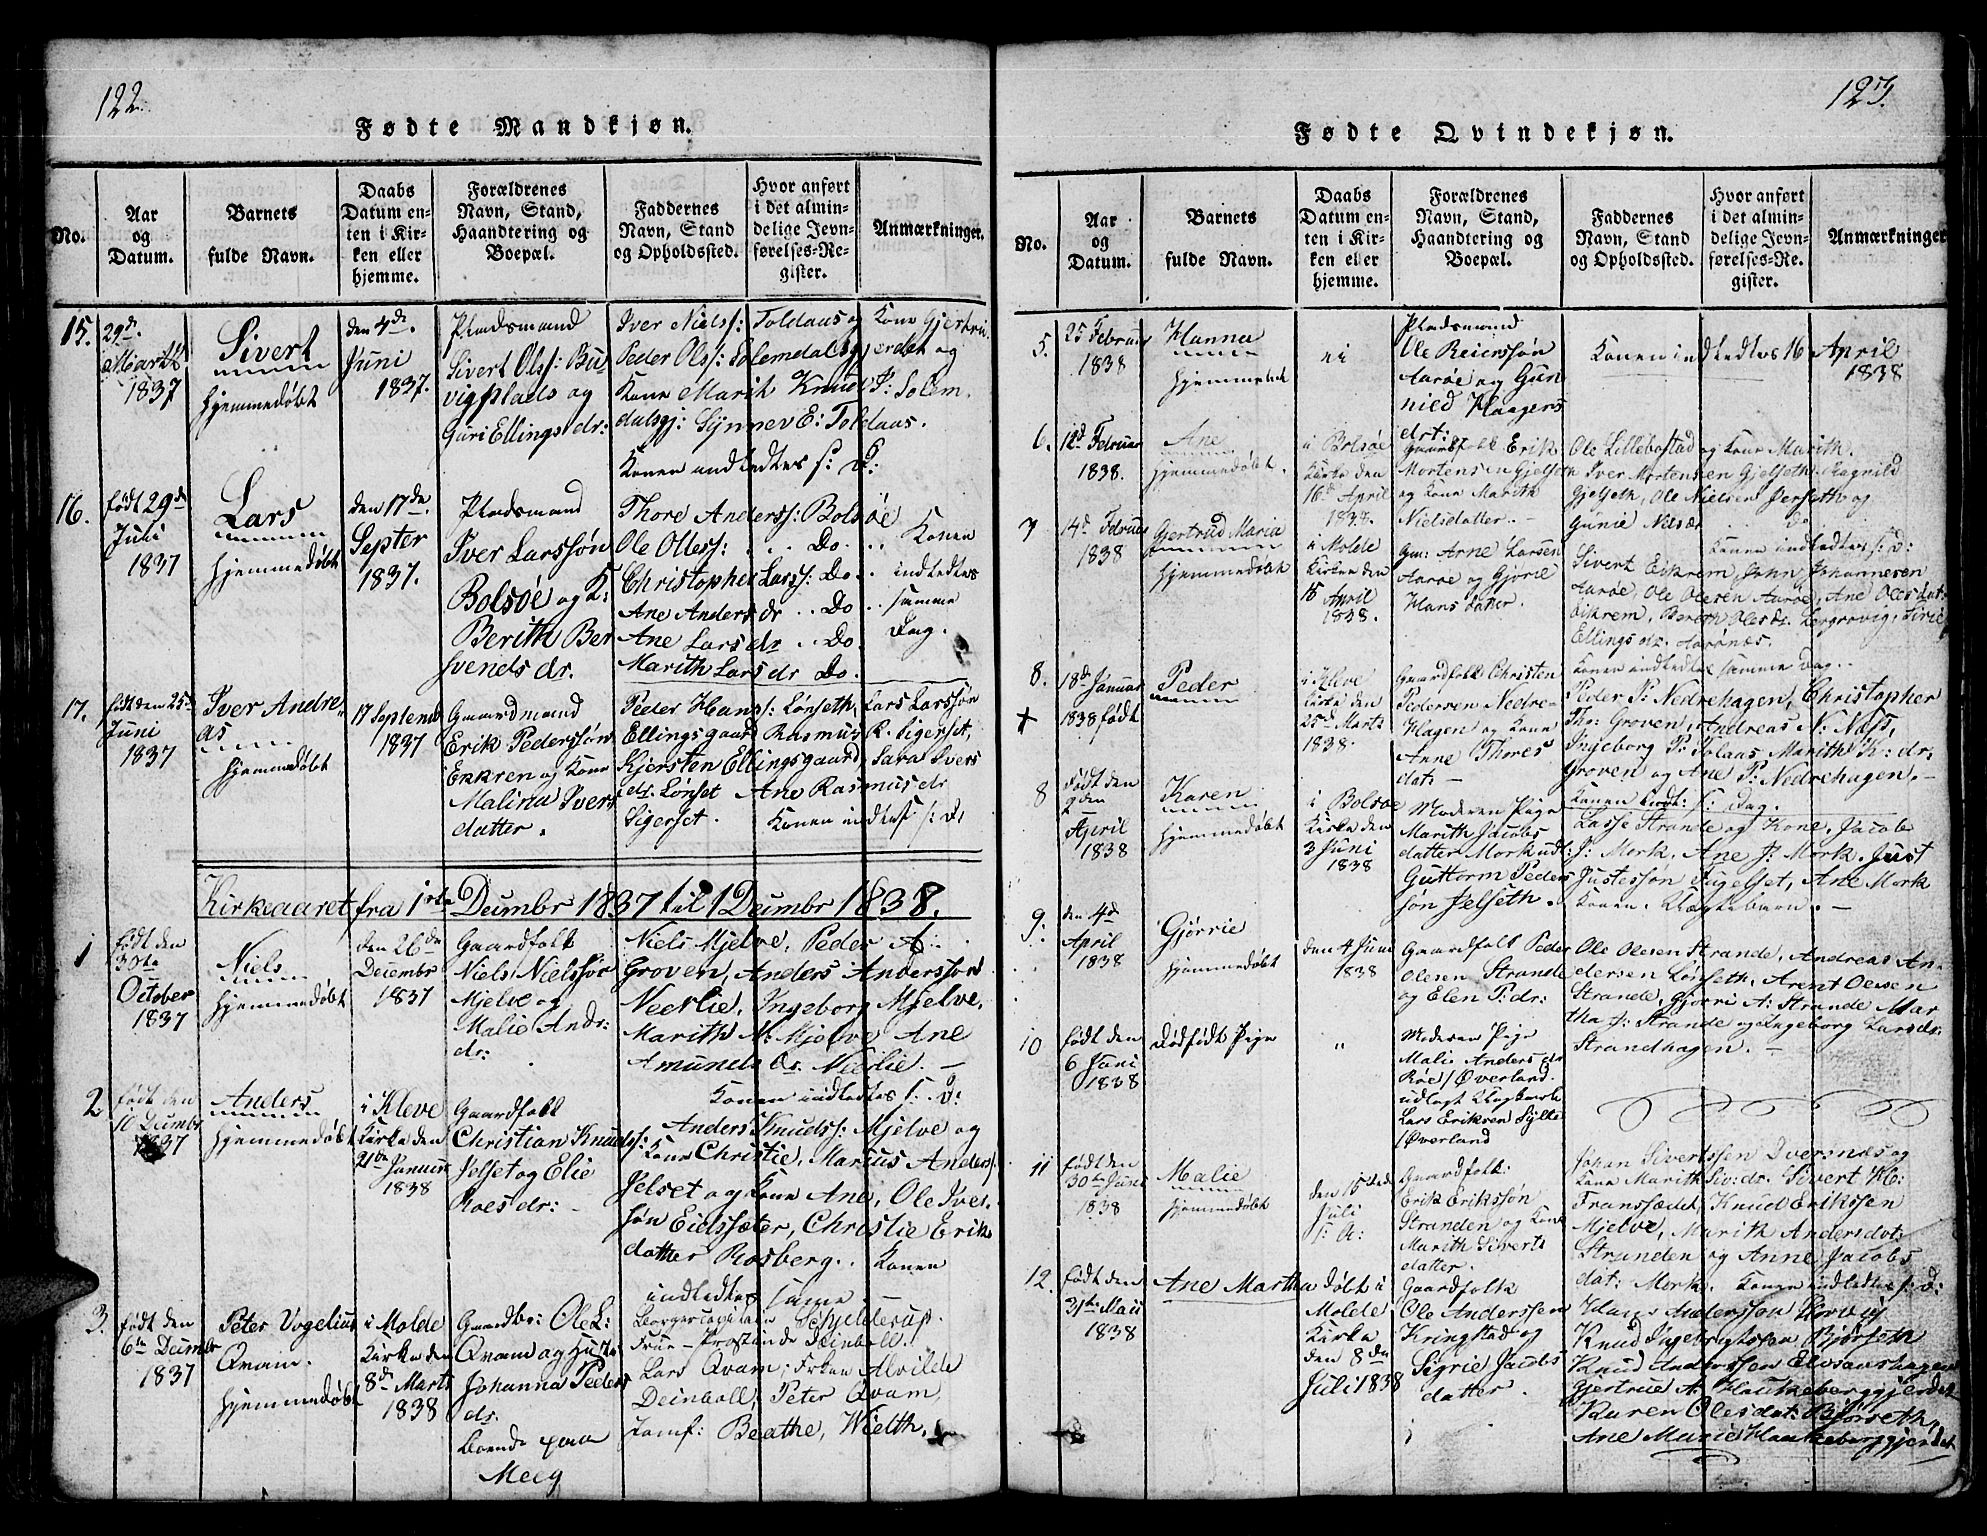 122.
Fødte Mandkjøn.
No.
Aar
og
Datum.
Barnets
fulde Navn.
Daabs
Datum en-
ten i Kir-
ken eller
hjemme.
Forældrenes
Navn, Stand,
Haandtering og
Boepæl.
Faddernes
Navn, Stand
og Opholdssted.
Hvor anført
i det almin-
delige Jevn-
førelses-Re-
gister.
Anmærkninger.
15.
29de
Martz
1837
Sivert
hjemmedøbt
den 4de
Juni
1837.
Pladsmand
Sivert Ols: Bu-
vigplads og
Guri Ellings dr:
Iver Niels: Toldaas og Kone Gjertru
Peder Ols: Solemdalsgjerdet og
Kone Marit Knuds I: Solem
dalsgj: Synnev E: Toldaas.
Konen indledtes s: D:
16.
født 29de
Juni
1837
Lars
hjemmedøbt
den 17de
Septer
1837.
Pladsmand
Iver Larssøn
Bolsøe og K:
Berith Ber
svends dr.
Thore Anderss: Bolsøe
Ole Oles: .. Do ..
Christopher Larss: Do ..
Ane Anders dr .. Do ..
Ane Lars dr .. Do
Marith Lars dr Do.
Konen
indledtes
samme
Dag.
17.
født den 25de
Juni
1837
Iver Andre-
as
hjemmedøbt
17 Septemb
1837
Gaardmand
Erik Pederssøn
Eikren og Kone
Malina Ivers
datter.
Peder Hans: Lønseth, Lars Larssøn
Ellingsgaard Rasmus R. Sigerset,
Kjersten Ellingsgaard, Sara Ivers
dr: Lønset Ane Rasmus dr
Sigerset. Konen indledt s: D:
Kirkeaaret fra 1ste Decembr 1837 til 1 Decembr 1838.
1
født den
30te
October
1837
Niels
hjemmedøbt
den 26de
Decembr
1837
Gaardfolk
Niels Nielssøn
Mjelve og
Malie Andr:
dr:
Niels Mjelve, Peder A:
Groven, Anders Anderssøn
Neerlie, Ingeborg Mjelve,
Marith N: Mjelve Ane
Amunds dr. Neerlie. —
Konen indledtes s: D:
2
født den
10 Decembr
1837
Anders
hjemmedøbt
i Kleve
Kirke den
21de Januar
1838
Gaardfolk
Christian Knuds:
Jelset og Elie
Roes dr: -
Anders Knuds: Mjelve og
Kone Christie, Marius Anders:
Jelset og Kone Ane, Ole Iver-
søn Eidssæter, Christie Erik
datter Rosberg. Konen
indledtes samme —
3.
født den
6te Decembr
1837
Peter Vogelius
Qvam.
hjemmedøbt
i Molde
Kirke den
8de Marts
1838
Gaardbr: Ole L:
Qvam og Hustr
Johanna Peders
dr.
boende paa
Moeg
Borgercapitain Schjelderup.
Frue — Provstinde Deinboll.
Lars Qvam, Frøken Alvilde
Deinboll, Peter Qvam
Jomf: Beathe, Wieth,
123.
Fødte Qvindekjøn.
No.
Aar
og
Datum.
Barnets
fulde Navn.
Daabs
Datum en-
ten i Kir-
ken eller
hjemme.
Forældrenes
Navn, Stand,
Haandtering og
Boepæl.
Faddernes
Navn, Stand
og Opholdssted.
Hvor anført
i det almin-
delige Jevn-
førelses-Re-
gister.
Anmærkninger
5.
25 Februar
1838
Hanna
hjemmedøbt
Pladsmand
Ole Reierssøn
Aarøe og Gun
nied Haagens
drt:
Konen indledtes 16 April
1838
6.
12de Februar
1838.
Ane
hjemmedøbt.
i Bolsøe
Kirke den
16de April
1838.
Gaardfolk Erik
Mortensen Gjelseth
og Kone Marith
Nielsdatter. -
Ole Lillebostad og Kone Marith.
Iver Mortensen Gjelseth, Magnild
Gjelseth, Ole Nielsen Jerseth og
Gunie Nesær
Konen indledtes s: D:
7
14de Februar
1838
Gjertrud Maria
hjemmedøbt
i Molde
Kirke den
15 April
1838.
Gm: Arne Larsen
Aarøe og Gjørie
Hans datter.
Sivert Eikrem, John Johannesen
Aarøe, Ole Olesen Aarøe, Ane Olesdat:
Eikrem, Berith Olesdr. Lergrovig, Sirie
Ellings dr. Aarønæs.
Konen indledtes samme Dag.
8.
+
18de Januar
1838 født
Peder
i Kleve
Kirke den
25de Marts
1838.
Gaardfolk Christen
Pedersen Nedre-
Hagen og Kone
Anne Thores
dat: —
Peder P: Nedrehagen, Christopher
Tho: Groven, Andreas N: Næss,
Ingeborg P: Tolaas Marith K: dr:
Groven og Ane P: Nedrehagen. -
Konen indl: s: Dag.
8
Født den
9den
April
1838
Karen
hjemmedøbt
i Bolsøe
Kirke den
3 Juni
1838
Moderen Pige
Marith Jacobs
datter Mork udl:
Guttorm Peders
søn Jelseth.
Lasse Strande og Kone, Jacob
J: Mork, Ane J: Mork. Just
Justessøn Fugelset, Ane Mork
Konen. Uægte barn. —
9.
den 4de
April
1838
Gjørrie
hjemmedøbt
den 4 Juni
1838
Gaardfolk Peder
Olesen Strande
og Elen P: dr:
Ole Olesen Strande, Andreas An-
dersen Lønseth, Arent Olesen
Strande, Gjørri A: Strande Mar
tha J: Strande og Ingeborg Larsdr:
Strandhagen. —
10
født den
6 Juni
1838
Dødfødt Pige
"
Moderen Pige
Malie Anders dr
Røe / Øverland.
udlagt Ungkarl
Lars Eriksen Sylte
/ Øverland
11
født den
30te Juni
1838
Malie
hjemmedøbt
den 15de
Juli
s: A:
Gaardfolk:
Erik Erikssøn
Stranden og Kone
Marith Siverts
datter.
Johan Sivertssen Iversnæs og
Kone Marith Siv: dr. Sivert K:
Fransædet, Knud Eriksen
Mjelve, Marith Andersdat:
Stranden og Anne Jacobs
dat: Mork. Konen indledtes s: D:
12.
født den
31te Mai
1838
Ane Martha
døbt i
Molde
Kirke
den 8de
Juli 1838
Gaardfolk
Ole Anderssen
Kringstad og
Sigrie Jacobs
datter.
Hans Anderssøn Horvig
Knud Ingebrigtssøn Bjørseth
Knud Anderssen
Gjertrue A. Haukeberggjerdet
Karen Olesdat: Bjørseth
Ane Marie Haukeberggjerdet